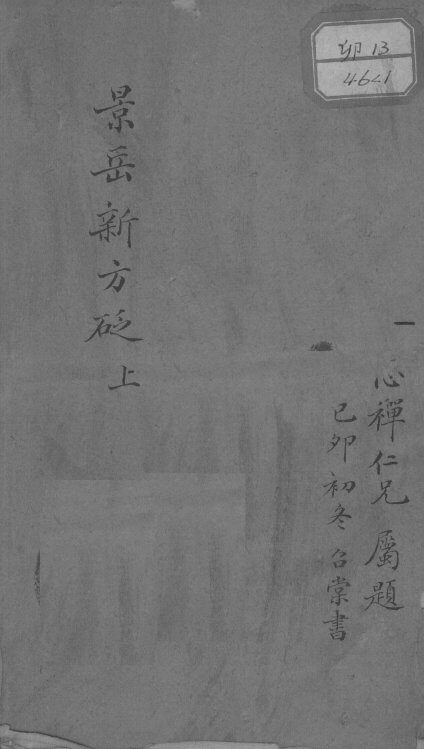 卯13
4641
景岳新方砭 上
心禪仁兄屬題
己卯初冬召棠書